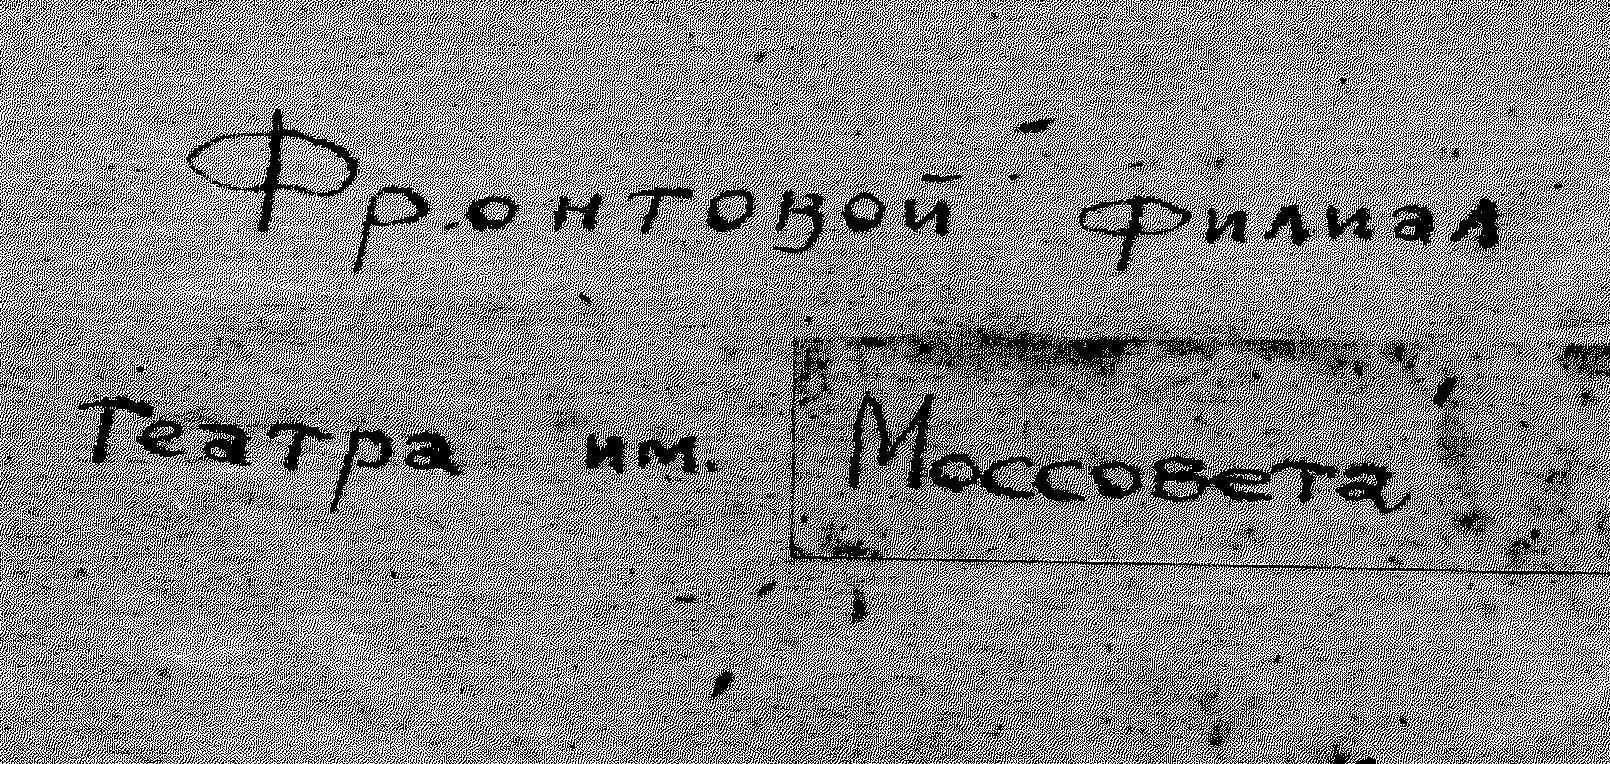 Фронтовой филиал
Театра им. Моссовета